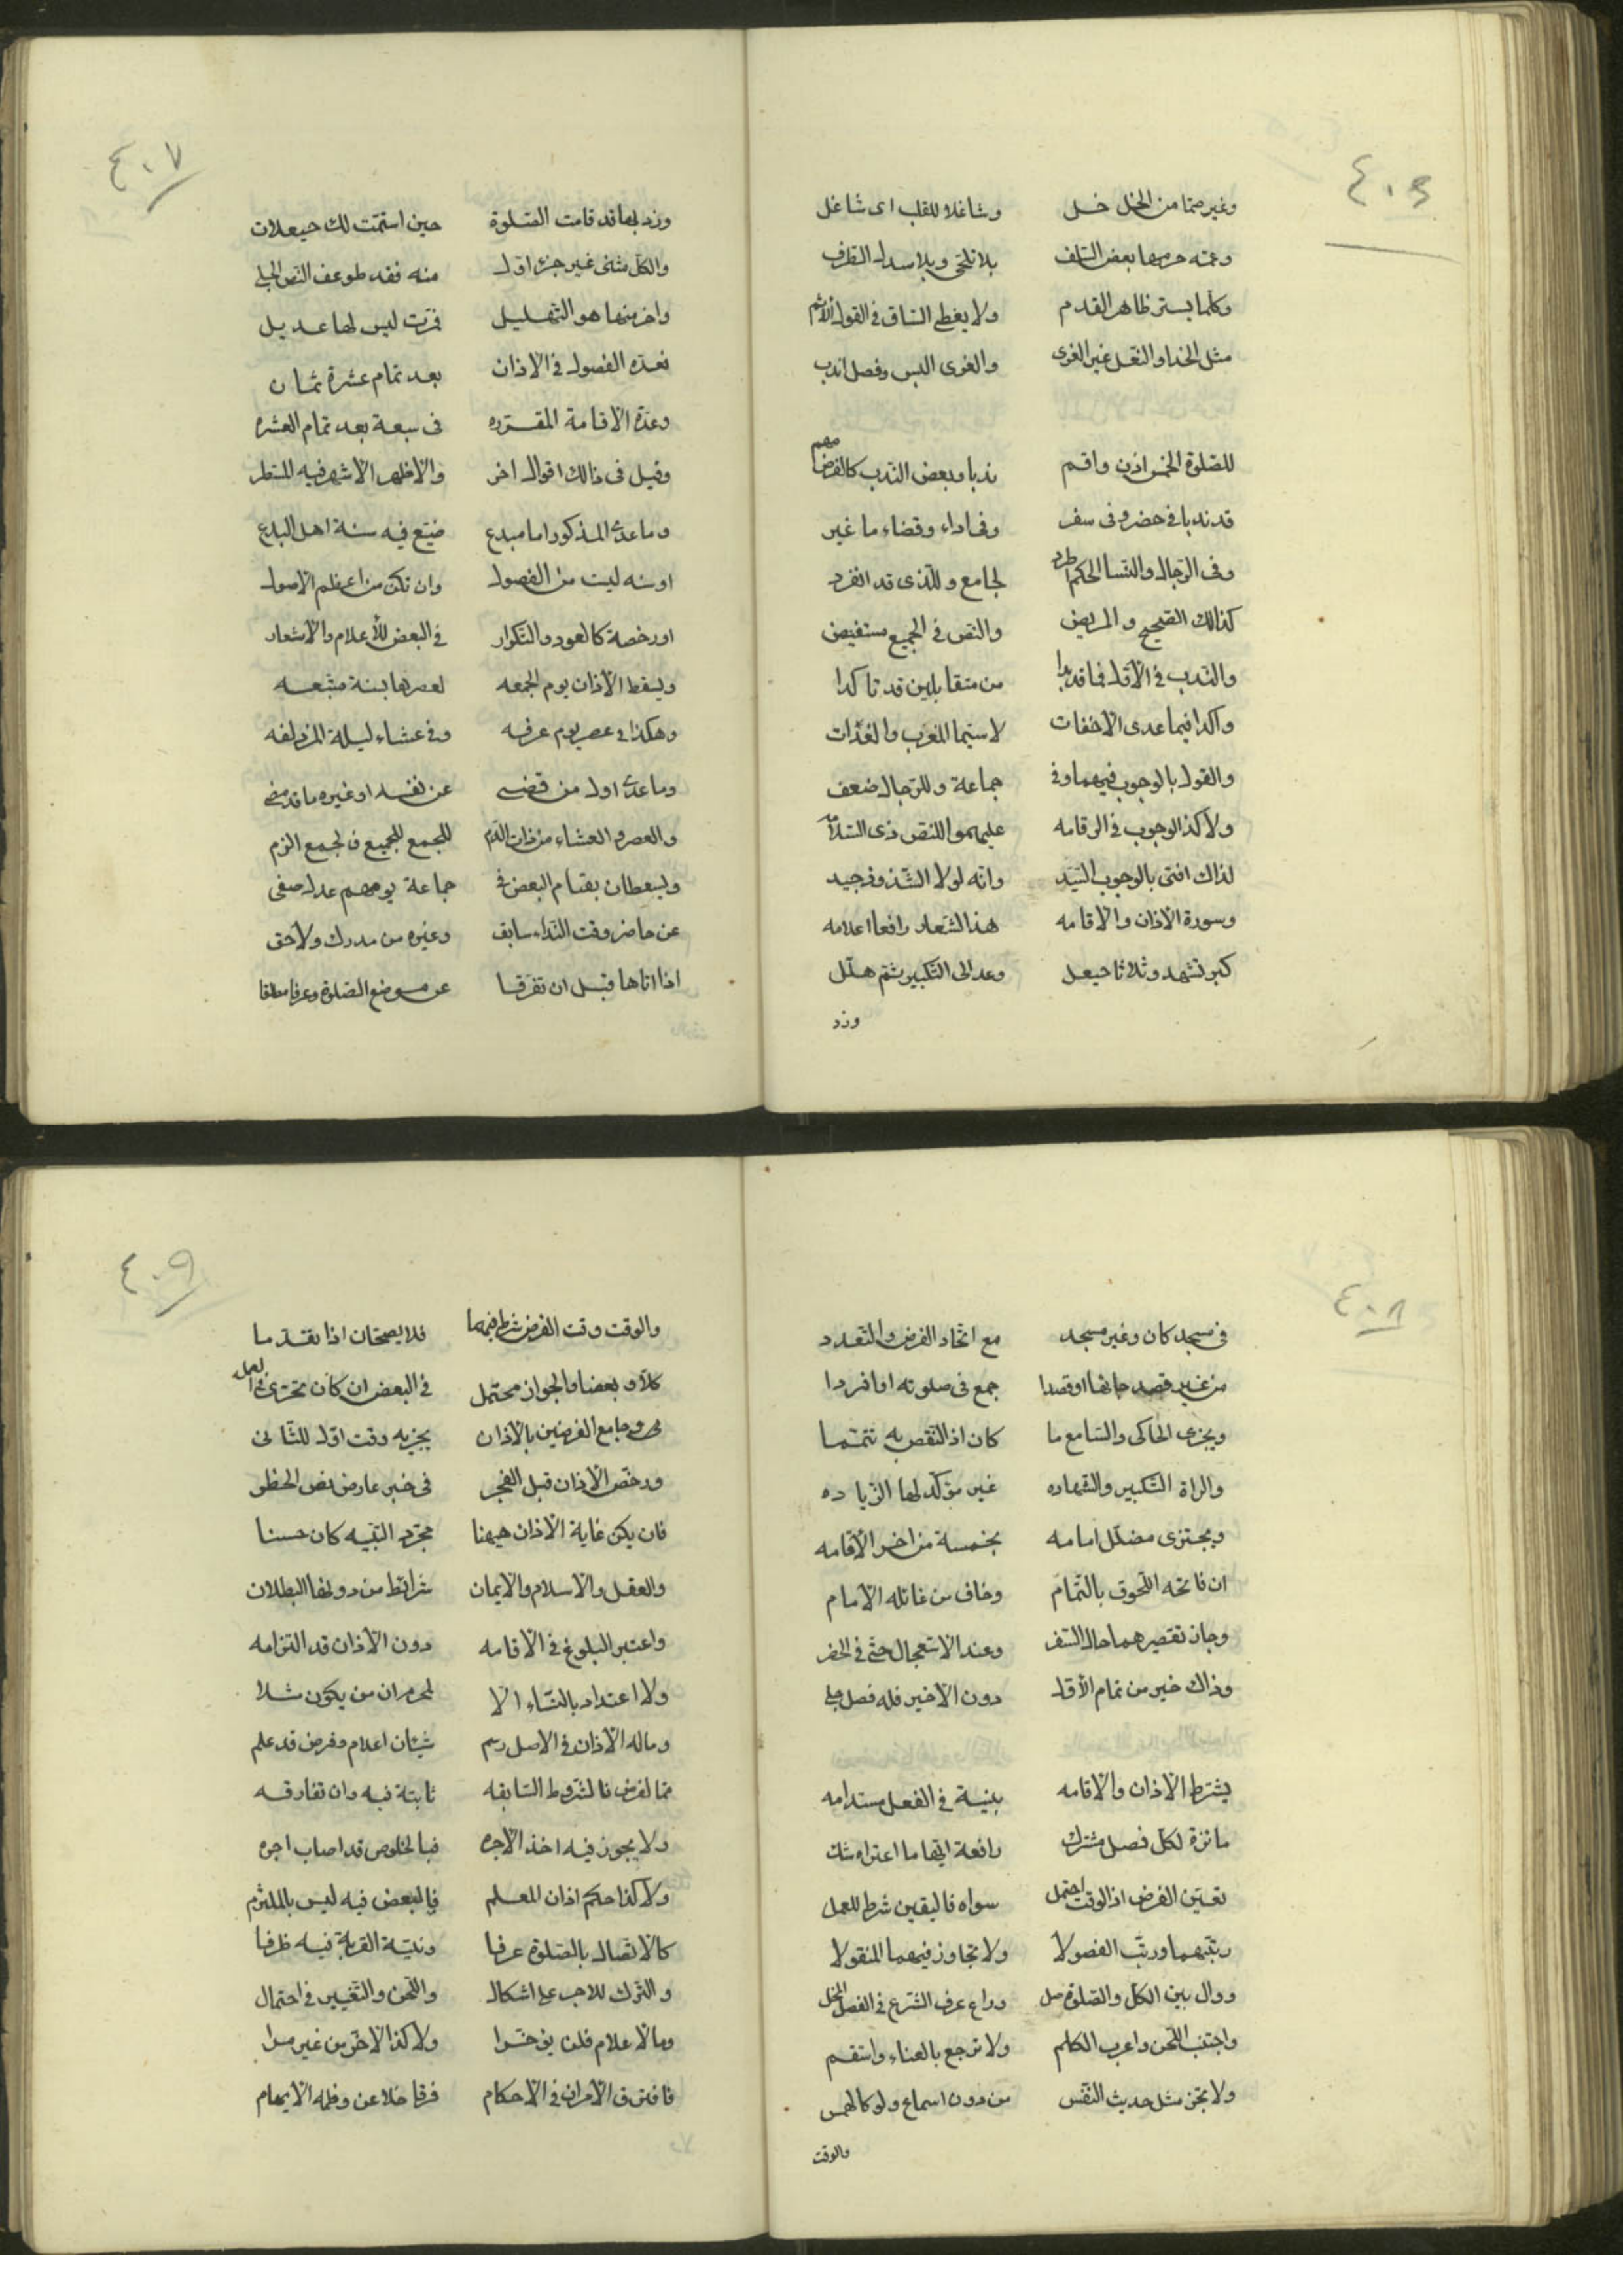 ٤٠٦
وغير ممّا من الخل خل وشاغلا للقلب اى شاغل
وعمّه حرمها بعض السّلف بلا تلحّى وبلا سدل الطرف
وكلما يستر ظاهر القدم ولا يغطى السّاق فى القول الأتم
مثل الحذاو النّعل غير الغرى والغرى البس وفصل اندب
للصّلوة الخمس اذن واقم ندبا وبعض النّدب كالفرض مهم
قد ندبا فى حضر وفى سفر وفى اداء وقضاء ما غبر
وفى الرّجال والنّسا الحكم اطّرد لجامع وللّذى قد انفرد
كذالك الصّحيح والمريض والنّص فى الجميع مستفيض
والنّدب فى الأوّل فيما قد بدا من متقابلين قد تاكدا
واكدا فيما عدى الاخفات لا سيّما المغرب والغداة
والقول بالوجوب فيهما وفى جماعة وللرّجال ضعف
ولا كذ الوجوب فى الاقامه عليهموا للنّص ذى السّلامه
لذاك افتى بالوجوب السّيّد وانّه لولا الشّذوذ جيد
وسورة الاذان والاقامه هذا الشّعار رافعا اعلامه
كبر تشهد وثلاثا حيعل وعد الى التّكبير ثمّ هلّل
وزد
٤٠٧
وزد بها قد قامت الصّلوة حين استتمّت لك حيعلات
والكلّ مثنى غير جزء اوّل منه فقد طوعف النّص الجلى
واخر منها هو التّهليل فرّت ليس لها عديل
فعدّه الفصول فى الاذان بعد تمام عشرة ثمان
وعدّة الاقامة المقرّره فى سبعة بعد تمام العشره
وقيل فى ذالك اقوال اخر والاظهر الاشهر فيه المستطر
وما عدى المذكور اما مبدع ضيّع فيه سنة اهل البدع
او سنه ليست من الفصول وان تكن من اعظم الاصول
او رخصة كالعود والتّكرار فى البعض للأعلام والاشعار
ويسقط الأذان يوم الجمعه لعصرها بسنة متّبعه
وهكذا فى عصر يوم عرفه وفى عشاء ليلة المزدلفه
وما عدى اول من قضى عن نفسه او غيره ما قد مضى
والعصر والعشاء من ذات الدّم للجمع للجميع فالجمع الزم
ويسقطان بقيام البعض فى جماعة يومهم عدل صفى
عن حاضر وقت النّداء سابق وغيره من مدرك ولاحق
اذا اتاها قبل ان تفرّقا عن موضع الصّلوة وعرفا مطلقا
٤٠٨
فى مسجد كان وغير مسجد مع اتّحاد الفرض والتّعدد
من غير قصد جائها او قصدا جمع فى صلوته او افردا
ويجزى الحاكى والسّامع ما كان اذ النّقص به تتمّما
والمراة التّكبير والشّهاده غير مؤكّد لها الزّياده
ويجتزى مضلّل امامه بخمسة من اخر الأقامه
ان فاته اللّحوق بالتّمام وخاف من غائله الأمام
وجاز تقصيرهما حال السّفر وعند الاستعجال حتّى فى الحضر
وذاك خير من تمام الأوّل دون الاخير فله فصل جلى
يشترط الاذان والاقامه بنيّة فى الفعل مستدامه
مائزة لكلّ فصل مشترك رافعة ايهاما اعتراه شك
تعيّن الفرض اذ الوقت احتمل سواه فاليقين شرط للعمل
رتّبهما ورتّب الفصولا ولا تجاوز فيهما المنقولا
ووال بين الكلّ والصّلوة صل وراع عرف الشّرع فى الفصل المخل
واجتنب اللّحن واعرب الكلم ولا ترجع بالغناء واستقم
ولا يجز مثل حديث النّفس من دون اسماع ولو كالهمس
والوقت
٤٠٩
والوقت وقت الفرض شرط فيهما فلا يصحّان اذا تقدّما
كلاّ او بعضا والجواز محتمل فى البعض ان كان تحرّى فى العمل
وجامع الفرضين بالأذان يجزيه وقت اوّل للثّانى
ورخّص الأذان قبل الفجر فى خبر عارض نص الحظر
فان يكن غاية الاذان هيهنا مجرّد التّنبيه كان حسنا
والعقل والاسلام والايمان شرائط من دونها البطلان
واعتبر البلوغ فى الاقامه دون الأذان قد التزامه
ولا اعتداد بالنّساء الا لمحرم ان من يكون مثلا
وماله الأذان فى الاصل رسم شيئان اعلام وفرض قد علم
فما لفرض فالشّروط السّابقه ثابتة فيه وان تفارقه
ولا يجوز فيه اخذ الأجره فبالخلوص قد اصاب اجره
ولا كذا حكم اذان المعلم فالبعض فيه ليس بالملتزم
كالأتّصال بالصّلوة عرفا ونيّة القربة فيه ظرفا
والترك للاجر على اشكال واللّحن والتّغيير فى احتمال
وما لاعلام فلن يؤخّرا ولا كذا الاخر من غير مرا
فافترق الأمران فى الأحكام فرقا خلا عن وطمه الايهام